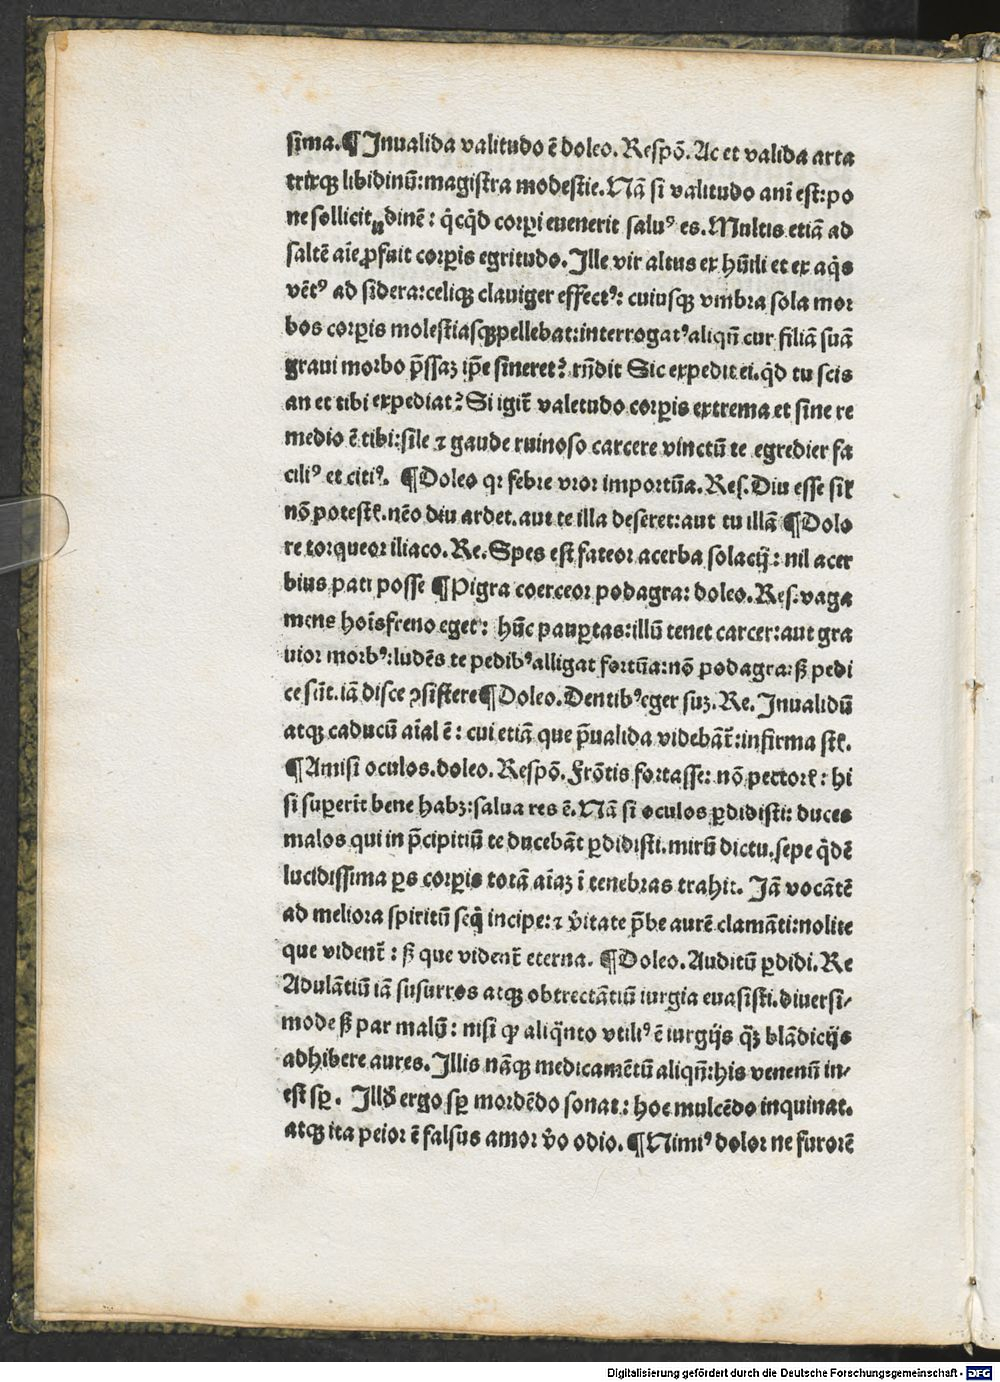 sima.¶Inualida valitudo ē doleo. Respō. Ac et valida arta
trixqꝫ libidinū:magistra modestie.Nā si valitudo anī est:po
ne sollicitudinē: q̄cq̄d corꝑi euenerit saluꝰ es.Multis etiā ad
saltē aīe ꝓfuit corꝑis egritudo.Ille vir altus ex hūili et ex aq̄s
vētꝰ ad sidera:celiqꝫ clauiger effectꝰ: cuiusqꝫ vmbra sola mor
bos corꝑis molestiasqꝫ pellebat:interrogatꝰ aliqn̄ cur filiā suā
graui morbo p̄ssaꝫ ip̄e sineret? rn̄dit Sic expedit ei.q̄d tu scis
an et tibi expediat? Si igit̄ valetudo corꝑis extrema et sine re
medio ē tibi:sile ⁊ gaude ruinoso carcere vinctū te egredier fa
ciliꝰ et citiꝰ. ¶Doleo qꝛ febre vror importūa.Res.Diu esse sil̄
nō potestꝭ.nēo diu ardet.aut te illa deseret:aut tu illā ¶Dolo
re torqueor iliaco.Re.Spes est fateor acerba solacij: nil acer
bius pati posse ¶Pigra coerceor podagra: doleo.Res.vaga
mens hoīs freno eget: hūc pauꝑtas:illū tenet carcer:aut gra
uior morbꝰ:ludēs te pedibꝰ alligat fortūa:nō podagra:ß pedi
ce sūt.iā disce ꝯsistere¶Doleo.Dentibꝰ eger suꝫ.Re.Inualidū
atqꝫ caducū aīal ē: cui etiā que p̄ualida videbāt̄:infirma stꝭ.
¶Amisi oculos.doleo.Respō.Frōtis fortasse: nō pectorꝭ: hi
si suꝑerīt bene habꝫ:salua res ē.Nā si oculos ꝑdidisti: duces
malos qui in p̄cipitiū te ducebāt ꝑdidisti.mirū dictu.sepe q̄dē
lucidissima ꝑs corꝑis totā aīaꝫ ī tenebras trahit. Iā vocātē
ad meliora spiritū seq̄ incipe:⁊ v̄itate p̄be aurē clamāti:nolite
que vident̄: ß que vident̄ eterna. ¶Doleo.Auditū ꝑdidi.Re
Adulātiū iā susurros atqꝫ obtrectātiū iurgia euasisti.diuersi⸗
mode ß par malū: nisi ꝙ aliq̄nto vtiliꝰ ē iurgijs q̄ꝫ blādicijs
adhibere aures.Illis nāqꝫ medicamētū aliqn̄:his venenū in⸗
est sꝑ. Illd̄ ergo sꝑ mordēdo sonat: hoc mulcēdo inquinat.
atqꝫ ita peior ē falsus amor v̄o odio.¶Nimiꝰ dolor ne furorē
Digitalisierung gefördert durch die Deutsche Forschungsgemeinschaft - DFG